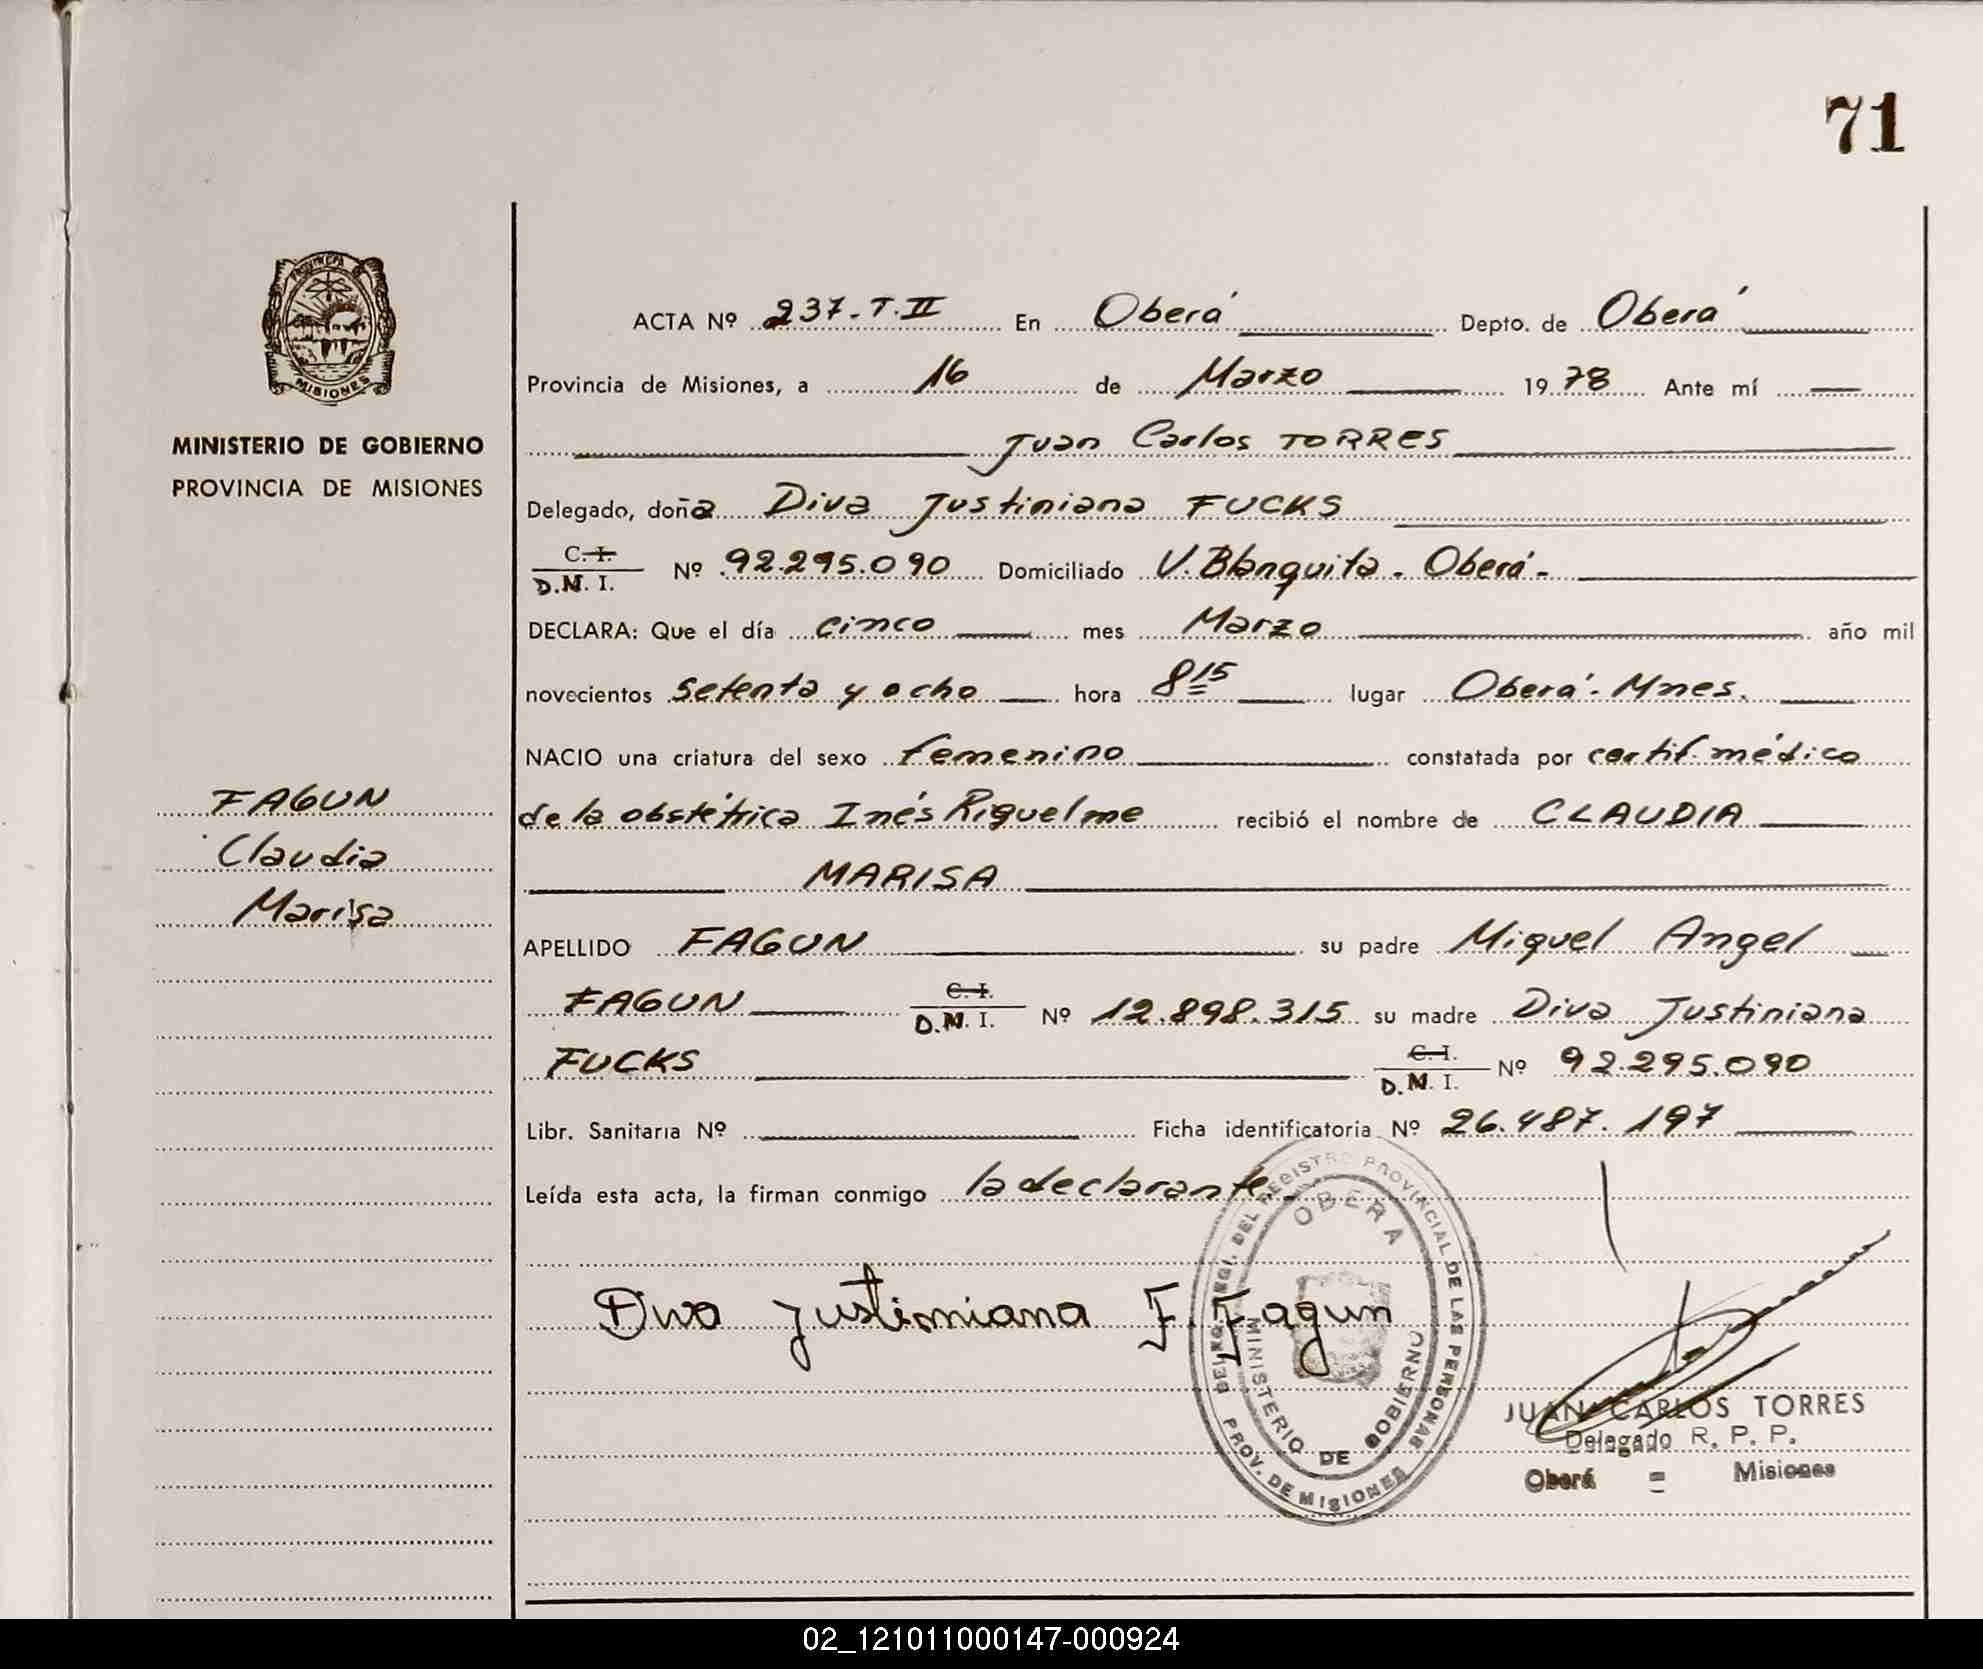 71
PROVINCIA
MISIONES
MINISTERIO DE GOBIERNO
PROVINCIA DE MISIONES
FAGUN
Claudia
Marisa
ACTA Nº 237-T.II En Oberá Depto. de Oberá
Provincia de Misiones, a 16 de Marzo 1978 Ante mí
Juan Carlos TORRES
Delegado, doña Diva Justiniana FUCKS
C. I.
D.M. I. Nº 92.295.090 Domiciliado V. Blanquita - Oberá -
DECLARA: Que el día cinco mes Marzo año mil
novecientos setenta y ocho hora 8 15 lugar Oberá - Mnes.
NACIO una criatura del sexo femenino constatada por certif. médico
de la obstétrica Inés Riquelme recibió el nombre de CLAUDIA
MARISA
APELLIDO FAGUN su padre Miguel Angel
FAGUN C. I. D.M. I. Nº 12.898.315 su madre Diva Justiniana
FUCKS C. I. D.M. I. Nº 92.295.090
Libr. Sanitaria Nº Ficha identificatoria Nº 26.487.197
Leída esta acta, la firman conmigo la declarante.
Diva Justiniana F. Fagun
DEL REGISTRO PROVINCIAL DE LAS PERSONAS
PROV. DE MISIONES
OBERA
MINISTERIO DE GOBIERNO
JUAN CARLOS TORRES
Delegado R. P. P.
Oberá = Misiones
02_121011000147-000924